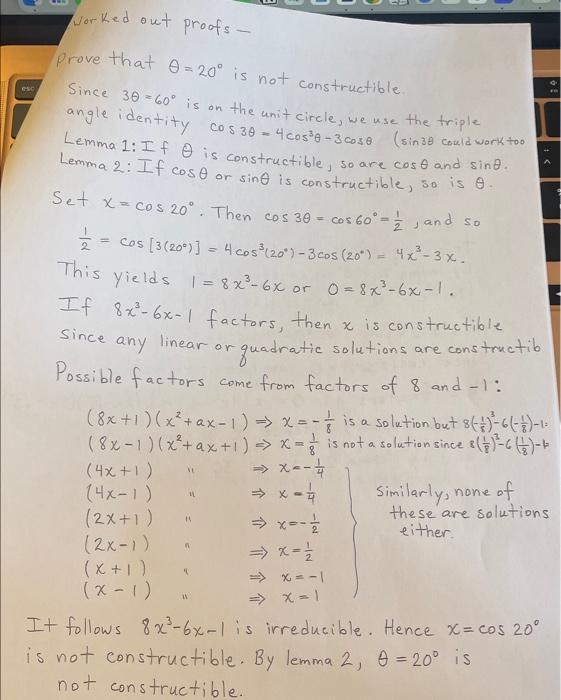 Worked out proofs —
Prove that θ = 20° is not constructible.
Since 3θ = 60° is on the unit circle, we use the triple
angle identity cos 3θ = 4cos³θ - 3cosθ (sin 3θ could work too
Lemma 1: If θ is constructible, so are cosθ and sinθ.
Lemma 2: If cosθ or sinθ is constructible, so is θ.
Set x = cos 20°. Then cos 3θ = cos 60° = 1/2, and so
1/2 = cos [3(20°)] = 4cos³(20°) - 3cos(20°) = 4x³ - 3x.
This yields 1 = 8x³ - 6x or 0 = 8x³ - 6x - 1.
If 8x³ - 6x - 1 factors, then x is constructible
since any linear or quadratic solutions are constructib
Possible factors come from factors of 8 and -1:
(8x + 1)(x² + ax - 1) ⇒ x = -1/8 is a solution but 8(-1/8)³ - 6(-1/8) - 1 =
(8x - 1)(x² + ax + 1) ⇒ x = 1/8 is not a solution since 8(1/8)³ - 6(1/8) - 1
(4x + 1) " ⇒ x = -1/4
(4x - 1) " ⇒ x = 1/4 Similarly, none of
(2x + 1) " ⇒ x = -1/2 these are solutions
(2x - 1) " ⇒ x = 1/2 either.
(x + 1) " ⇒ x = -1
(x - 1) " ⇒ x = 1
It follows 8x³ - 6x - 1 is irreducible. Hence x = cos 20°
is not constructible. By lemma 2, θ = 20° is
not constructible.
esc